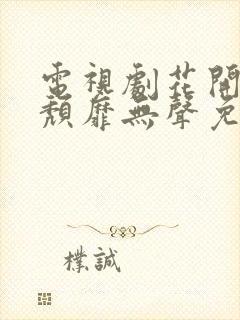 電視劇花開
頹靡無聲免
樸誠